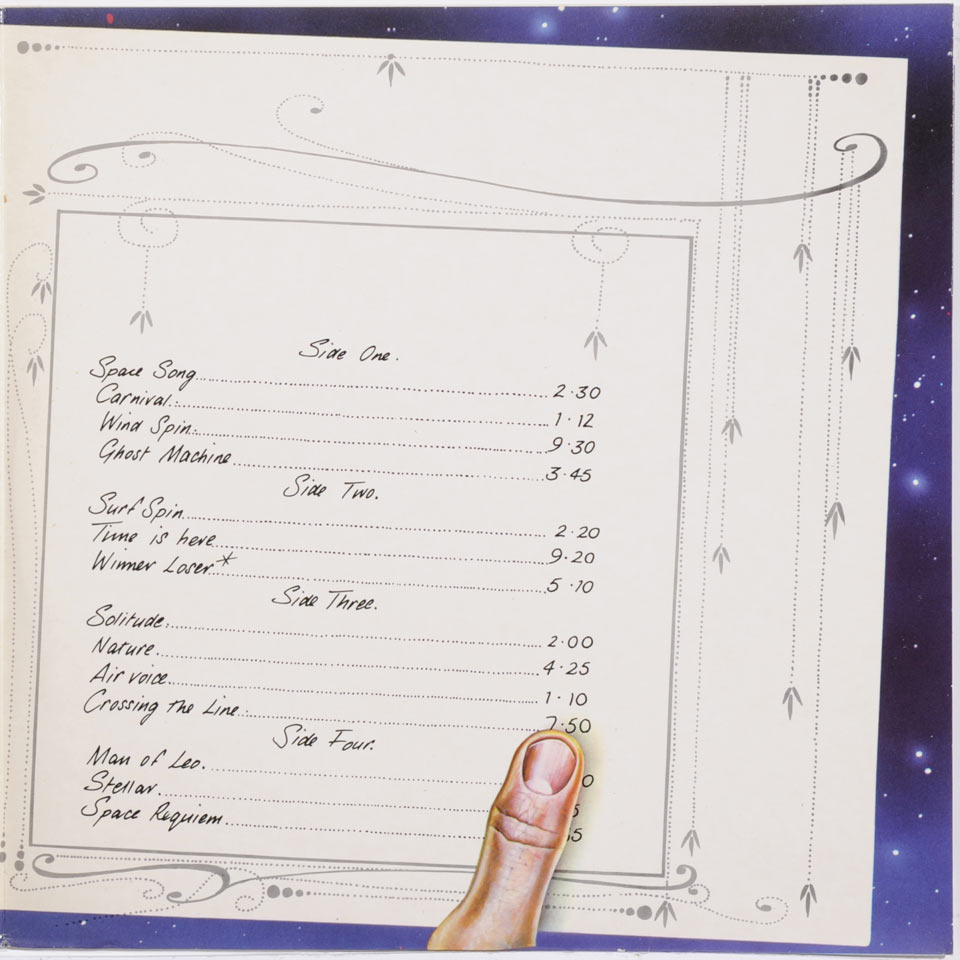 Side One.
Space Song 2·30
Carnival. 1·12
Wind Spin. 9·30
Ghost Machine 3·45
Side Two.
Surf Spin 2·20
Time is here 9·20
Winner Loser* 5·10
Side Three.
Solitude. 2·00
Nature. 4·25
Air voice. 1·10
Crossing the Line. 7·50
Side Four.
Man of Leo. 0
Stellar. 5
Space Requiem. 55